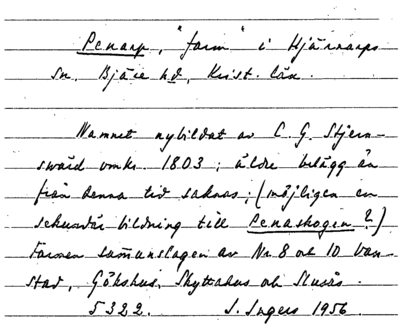 Penarp, "farm" i Hjärnarps
sn, Bjäre hd, Krist. län.
Namnet nybildat av C. G. Stjern-
swärd omkr. 1803; äldre belägg än
från denna tid saknas; (möjligen en
sekundär bildning till Penaskogen?)
Farmen sammanslagen av Nr. 8 och 10 Van-
stad, Gökshus, Skyttahus och Slusås.
5322. I. Ingers 1956.